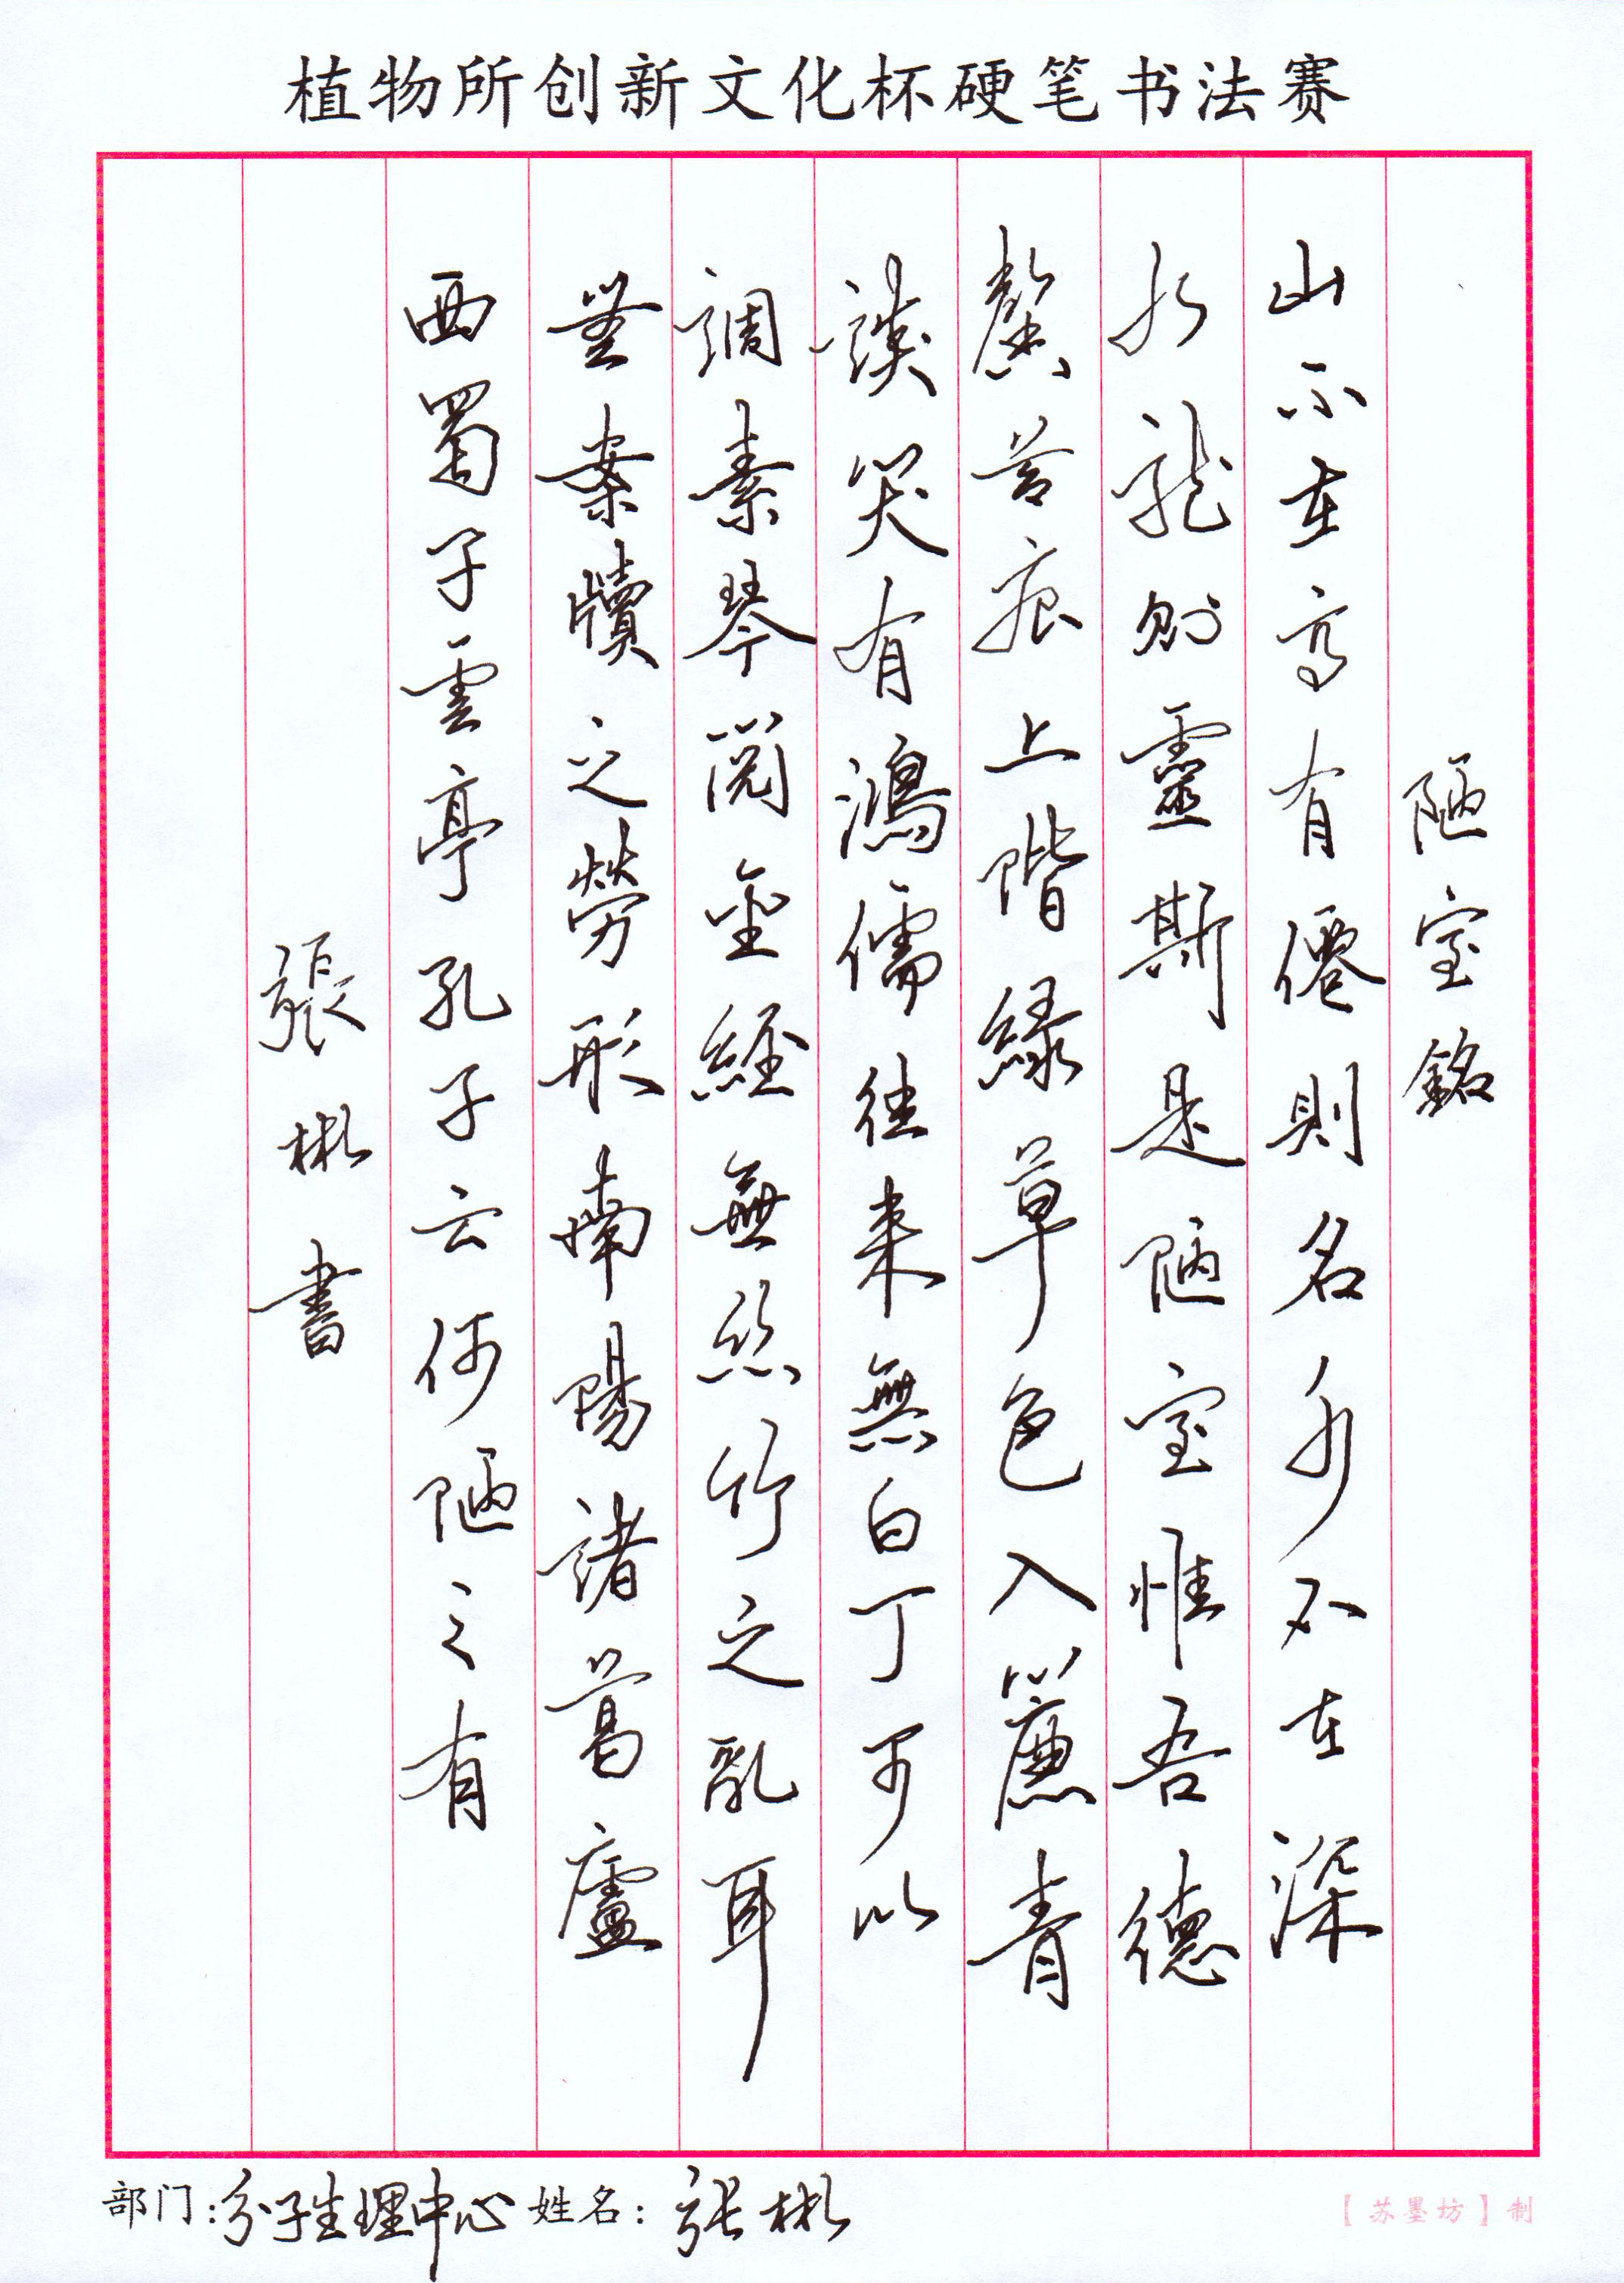 植物所创新文化杯硬笔书法赛
陋室銘
山不在高有僊則名水不在深
水龍則靈斯是陋室惟吾德
馨苔痕上階緑草色入簾青
談笑有鴻儒往来無白丁可以
調素琴閲金經無絲竹之亂耳
無案牘之勞形南陽諸葛廬
西蜀子雲亭孔子云何陋之有
張彬書
部门:分子生理中心 姓名:张彬
【苏墨坊】制